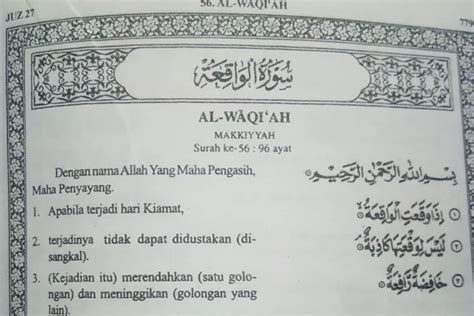 JUZ 27
56. AL-WĀQI'AH
سُورَةُ الْوَاقِعَةِ
AL-WĀQI'AH
MAKKIYYAH
Surah ke-56 : 96 ayat
Dengan nama Allah Yang Maha Pengasih,
Maha Penyayang.
بِسْمِ اللهِ الرَّحْمٰنِ الرَّحِيْمِ
1. Apabila terjadi hari Kiamat,
إِذَا وَقَعَتِ الْوَاقِعَةُ ۝١
2. terjadinya tidak dapat didustakan (di-
sangkal).
لَيْسَ لِوَقْعَتِهَا كَاذِبَةٌ ۝٢
3. (Kejadian itu) merendahkan (satu golo-
ngan) dan meninggikan (golongan yang
lain).
خَافِضَةٌ رَّافِعَةٌ ۝٣